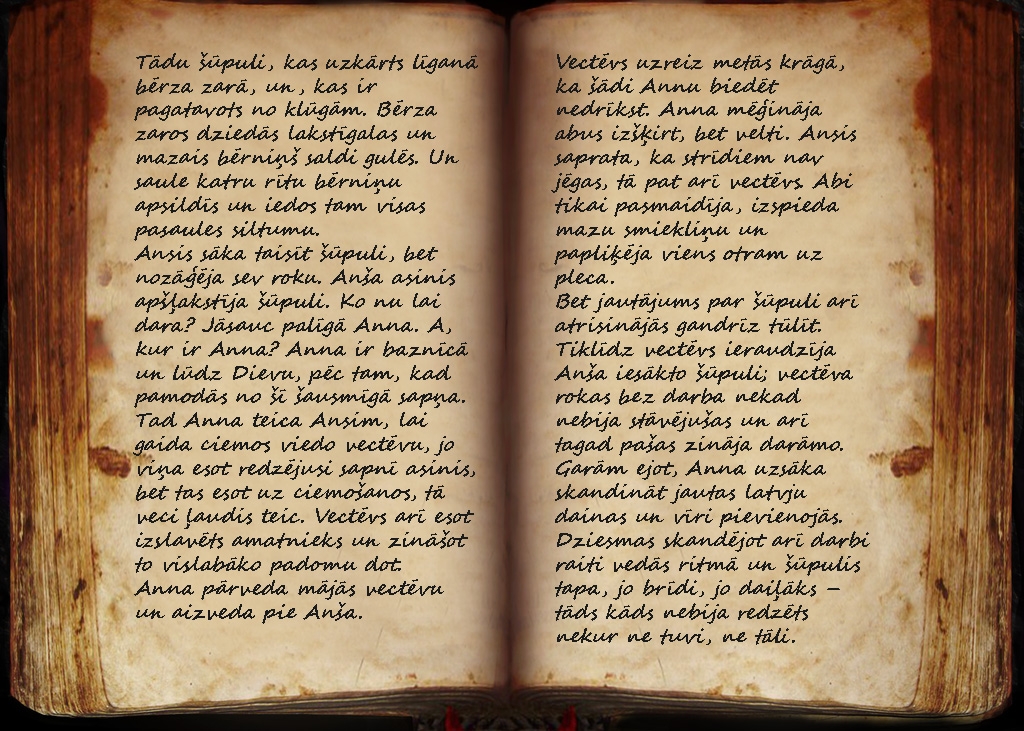 Tādu šūpuli, kas uzkārts līganā
bērza zarā, un, kas ir
pagatavots no klūgām. Bērza
zaros dziedās lakstīgalas un
mazais bērniņš saldi gulēs. Un
saule katru rītu bērniņu
apsildīs un iedos tam visas
pasaules siltumu.
Ansis sāka taisīt šūpuli, bet
nozāģēja sev roku. Anša asinis
apšļakstīja šūpuli. Ko nu lai
dara? Jāsauc palīgā Anna. A,
kur ir Anna? Anna ir baznīcā
un lūdz Dievu, pēc tam, kad
pamodās no šī šausmīgā sapņa.
Tad Anna teica Ansim, lai
gaida ciemos viedo vectēvu, jo
viņa esot redzējusi sapnī asinis,
bet tas esot uz ciemošanos, tā
veci ļaudis teic. Vectēvs arī esot
izslavēts amatnieks un zināšot
to vislabāko padomu dot.
Anna pārveda mājās vectēvu
un aizveda pie Anša.
Vectēvs uzreiz metās krāgā,
ka šādi Annu biedēt
nedrīkst. Anna mēģināja
abus izšķirt, bet velti. Ansis
saprata, ka strīdiem nav
jēgas, tā pat arī vectēvs. Abi
tikai pasmaidīja, izspieda
mazu smiekliņu un
papliķēja viens otram uz
pleca.
Bet jautājums par šūpuli arī
atrisinājās gandrīz tūlīt.
Tiklīdz vectēvs ieraudzīja
Anša iesākto šūpuli; vectēva
rokas bez darba nekad
nebija stāvējušas un arī
tagad pašas zināja darāmo.
Garām ejot, Anna uzsāka
skandināt jautas latvju
dainas un vīri pievienojās.
Dziesmas skandējot arī darbi
raiti vedās ritmā un šūpulis
tapa, jo brīdi, jo daiļāks –
tāds kāds nebija redzēts
nekur ne tuvi, ne tāli.